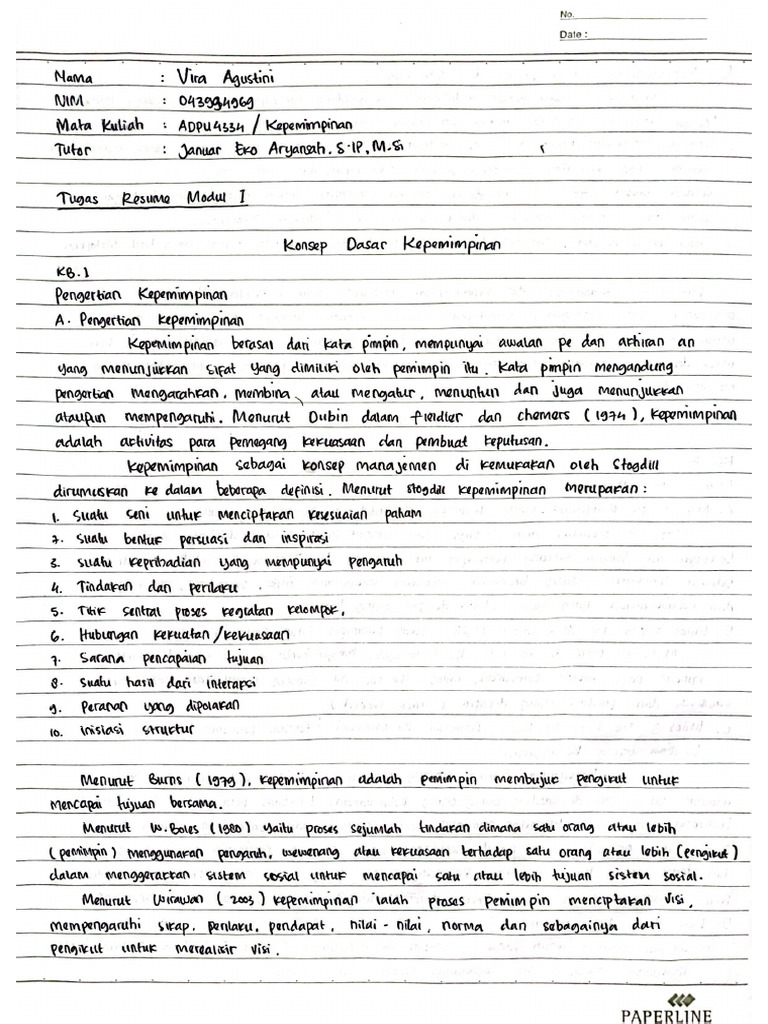 No.
Date :
Nama : Vira Agustini
NIM : 043994969
Mata Kuliah : ADPU4334 / Kepemimpinan
Tutor : Januar Eko Aryansah. S.IP, M.Si
Tugas Resume Modul I
Konsep Dasar Kepemimpinan
KB.1
Pengertian Kepemimpinan
A. Pengertian Kepemimpinan
Kepemimpinan berasal dari kata pimpin, mempunyai awalan pe dan akhiran an
yang menunjukkan sifat yang dimiliki oleh pemimpin itu. Kata pimpin mengandung
pengertian mengarahkan, membina, atau mengatur, menuntun dan juga menunjukkan
ataupun mempengaruhi. Menurut Dubin dalam fieldler dan chemers (1974), Kepemimpinan
adalah aktivitas para pemegang kekuasaan dan pembuat keputusan.
Kepemimpinan sebagai konsep manajemen di kemukakan oleh Stogdill
dirumuskan ke dalam beberapa definisi. Menurut stogdill kepemimpinan merupakan :
1. Suatu seni untuk menciptakan kesesuaian paham
2. Suatu bentuk persuasi dan inspirasi
3. Suatu kepribadian yang mempunyai pengaruh
4. Tindakan dan perilaku
5. Titik sentral proses kegiatan kelompok.
6. Hubungan kekuatan/kekuasaan
7. Sarana pencapaian tujuan
8. Suatu hasil dari interaksi
9. Peranan yang dipolakan
10. Inisiasi struktur
Menurut Burns (1979), kepemimpinan adalah pemimpin membujuk pengikut untuk
mencapai tujuan bersama.
Menurut W.Boles (1980) yaitu proses sejumlah tindakan dimana satu orang atau lebih
(pemimpin) menggunakan pengaruh, wewenang atau kekuasaan terhadap satu orang atau lebih (pengikut)
dalam menggerakkan sistem sosial untuk mencapai satu atau lebih tujuan sistem sosial.
Menurut Wirawan (2003) kepemimpinan ialah proses pemimpin menciptakan visi,
mempengaruhi sikap, perilaku, pendapat, nilai-nilai, norma dan sebagainya dari
pengikut untuk merealisir visi.
PAPERLINE